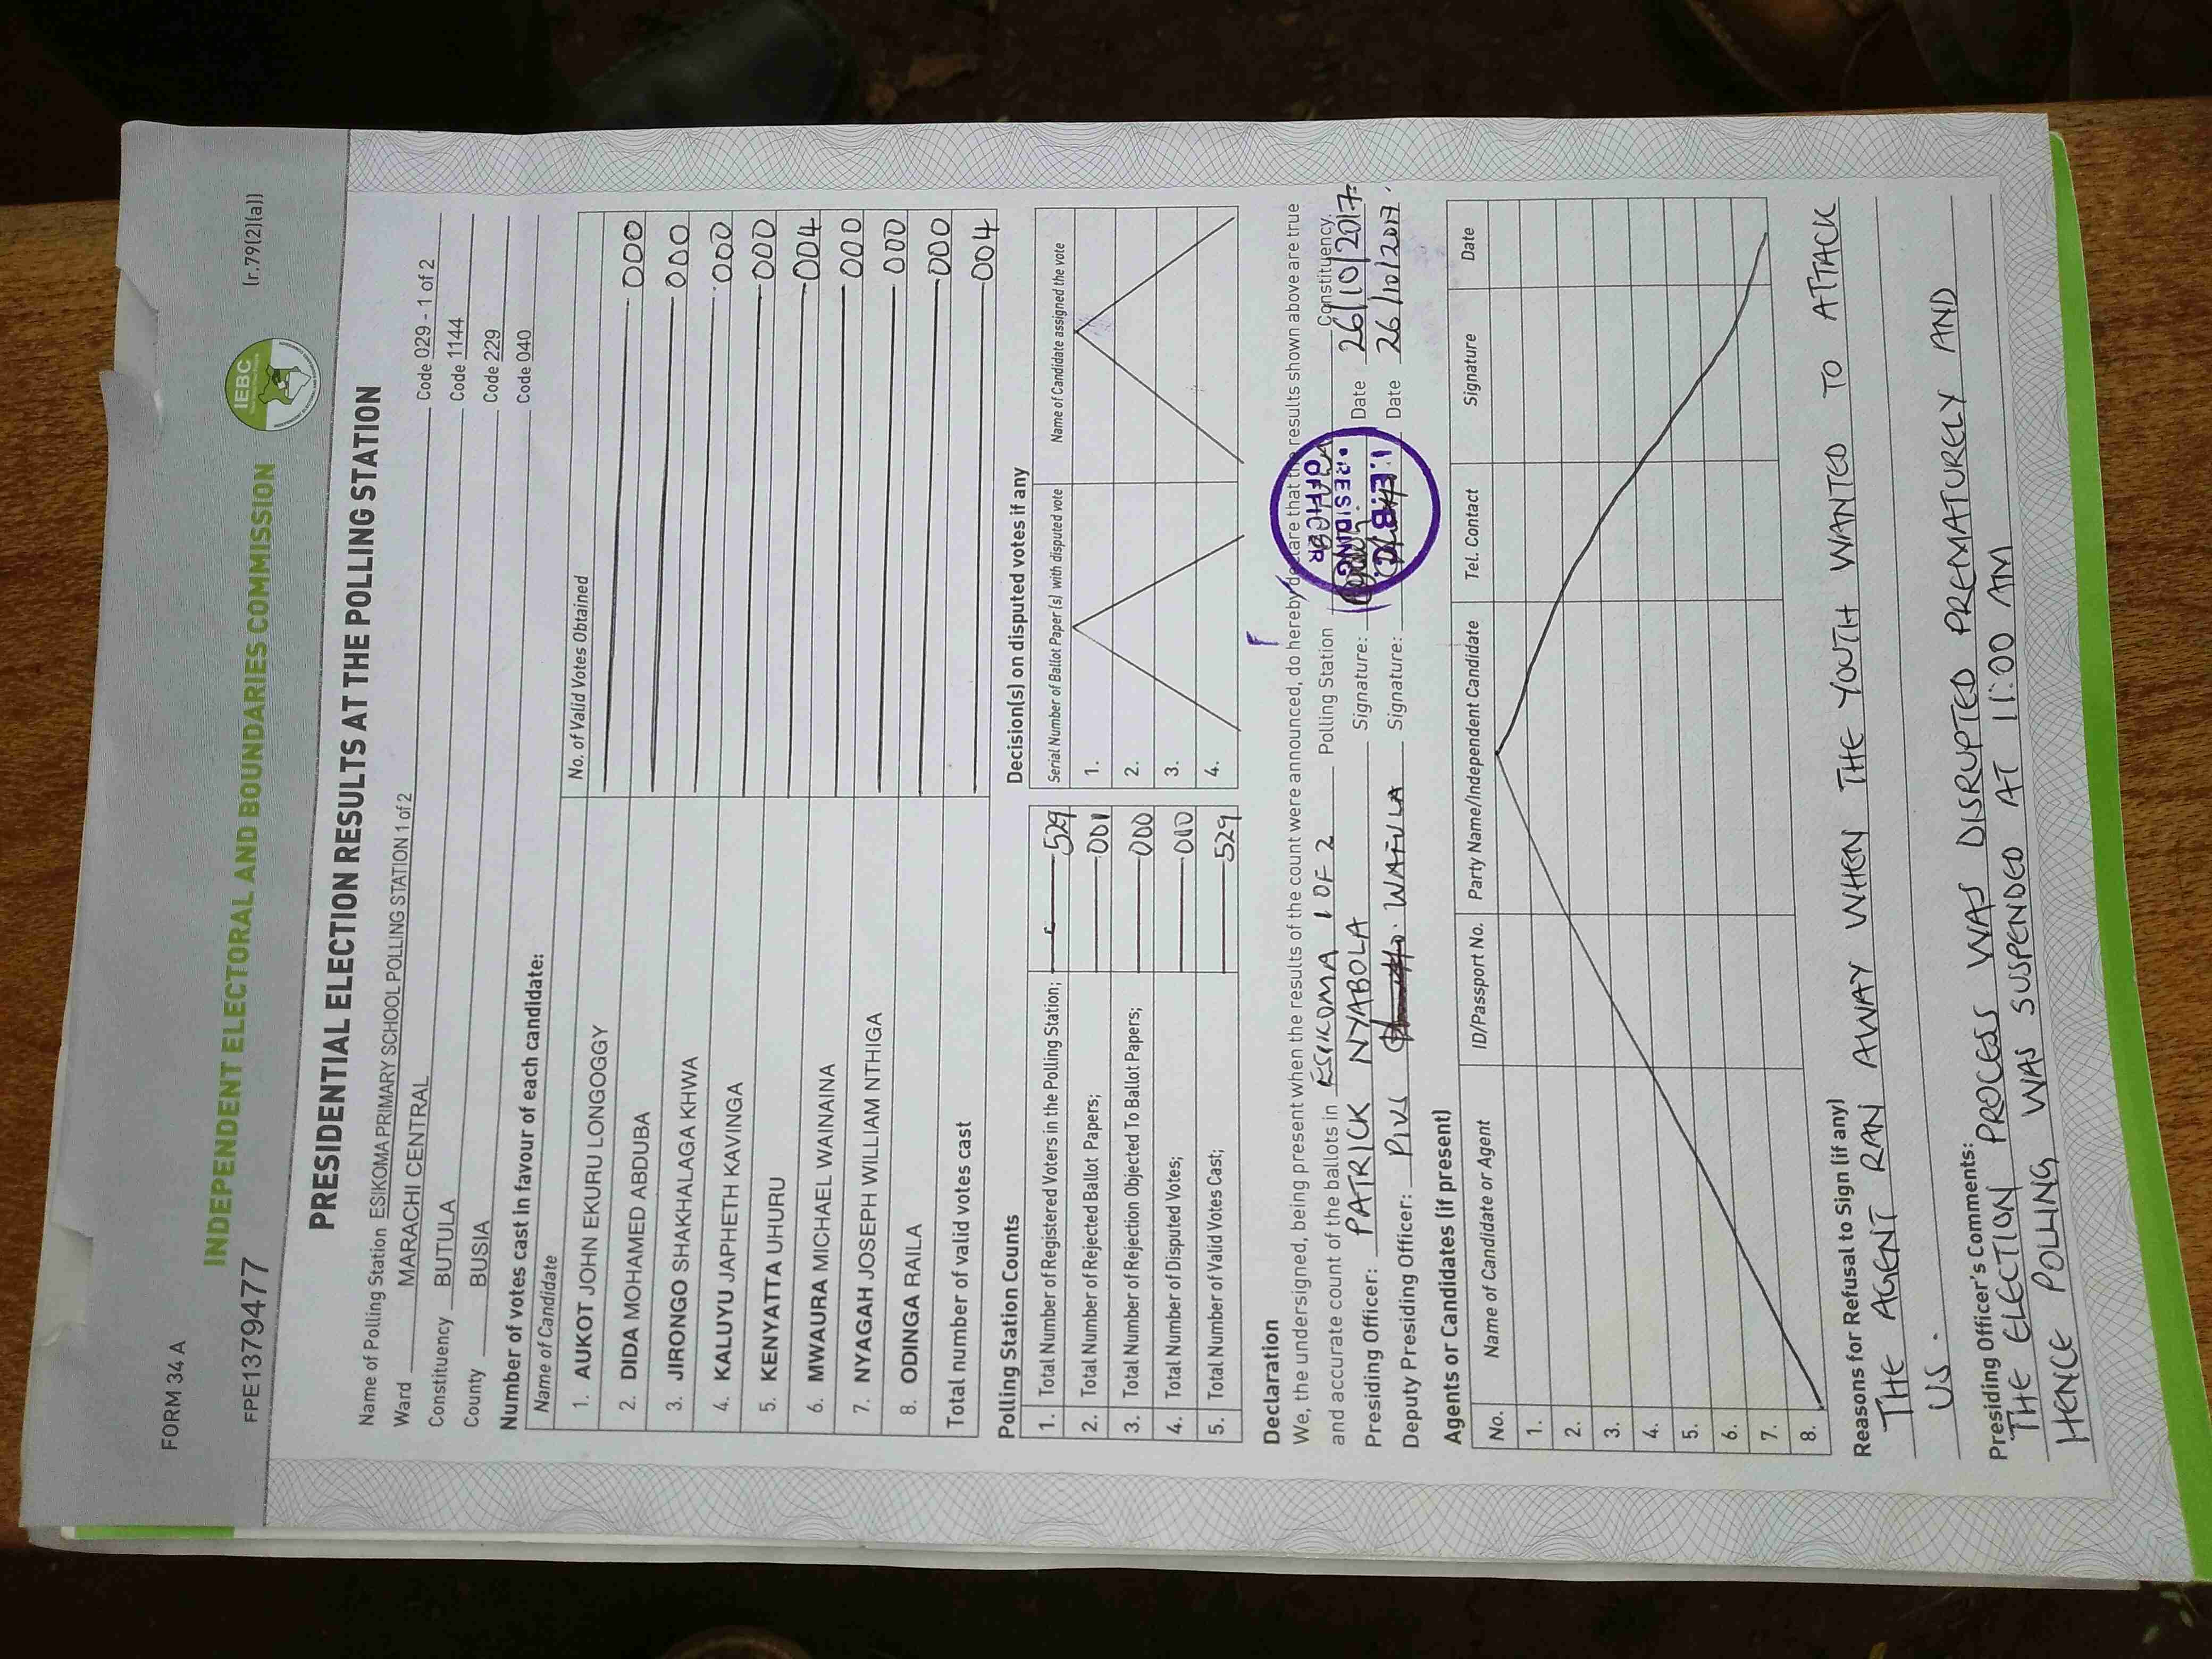 FORM 34 A
(r.79(2)(a))
IEBC
INDEPENDENT ELECTORAL AND BOUNDARIES COMMISSION
FPE1379477
PRESIDENTIAL ELECTION RESULTS AT THE POLLING STATION
Name of Polling Station ESIKOMA PRIMARY SCHOOL POLLING STATION 1 of 2 Code 029 - 1 of 2
Ward MARACHI CENTRAL Code 1144
Constituency BUTULA Code 229
County BUSIA Code 040
Number of votes cast in favour of each candidate:
Name of Candidate No. of Valid Votes Obtained
1. AUKOT JOHN EKURU LONGOGGY 000
2. DIDA MOHAMED ABDUBA 000
3. JIRONGO SHAKHALAGA KHWA 000
4. KALUYU JAPHETH KAVINGA 000
5. KENYATTA UHURU 004
6. MWAURA MICHAEL WAINAINA 000
7. NYAGAH JOSEPH WILLIAM NTHIGA 000
8. ODINGA RAILA 000
Total number of valid votes cast 004
Polling Station Counts
1. Total Number of Registered Voters in the Polling Station; 529
2. Total Number of Rejected Ballot Papers; 001
3. Total Number of Rejection Objected To Ballot Papers; 000
4. Total Number of Disputed Votes; 000
5. Total Number of Valid Votes Cast; 529
Decision(s) on disputed votes if any
Serial Number of Ballot Paper (s) with disputed vote Name of Candidate assigned the vote
1.
2.
3.
4.
Declaration
We, the undersigned, being present when the results of the count were announced, do hereby declare that the results shown above are true
and accurate count of the ballots in ESIKOMA 1 OF 2 Polling Station BUTULA Constituency.
Presiding Officer: PATRICK NYABOLA Signature: Date 26/10/2017
Deputy Presiding Officer: PIUS WAFULA Signature: Date 26/10/2017.
I.E.B.C.
PRESIDING
OFFICER
Agents or Candidates (if present)
No. Name of Candidate or Agent ID/Passport No. Party Name/Independent Candidate Tel. Contact Signature Date
1.
2.
3.
4.
5.
6.
7.
8.
Reasons for Refusal to Sign (if any)
THE AGENT RAN AWAY WHEN THE YOUTH WANTED TO ATTACK
US.
Presiding Officer's Comments:
THE ELECTION PROCESS WAS DISRUPTED PREMATURELY AND
HENCE POLLING WAS SUSPENDED AT 11:00 AM